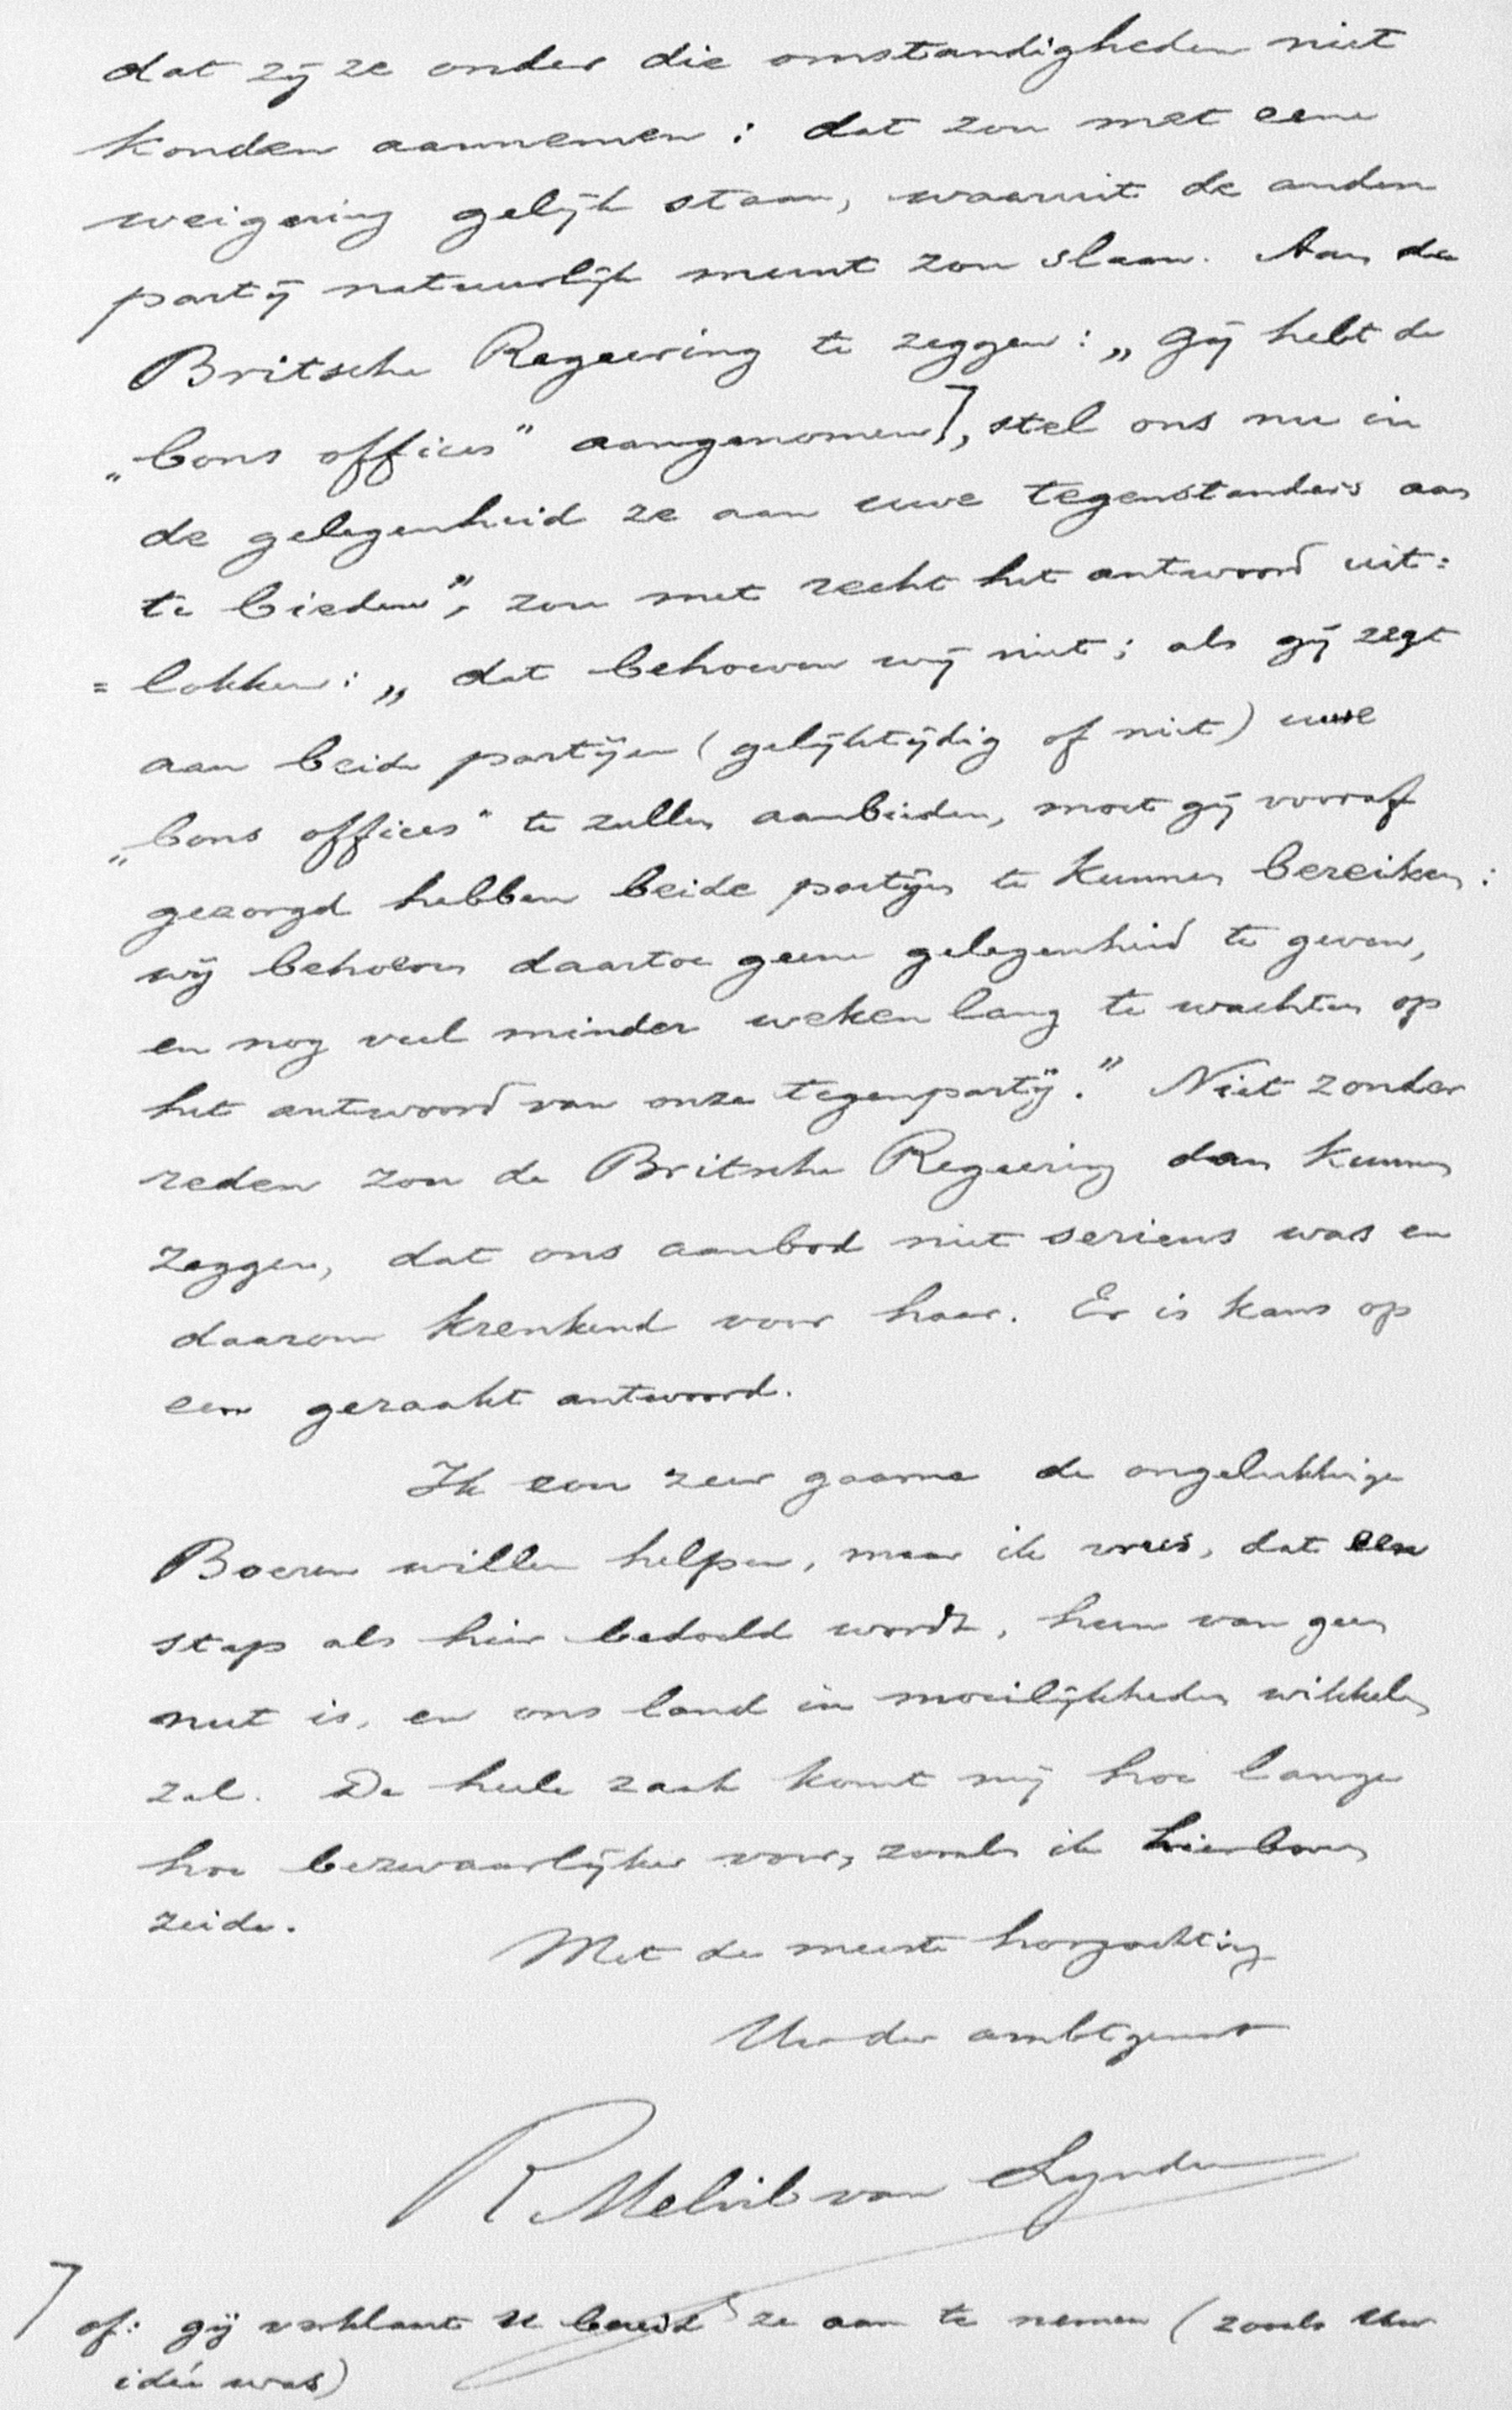 dat zij ze onder die omstandigheden niet
konden aannemen: dat zou met eene
weigering gelijk staan, waaruit de andere
partij natuurlijk munt zou slaan. Aan de
Britsche Regeering te zeggen: „Gij hebt de
„bons offices” aangenomen⌉, stel ons nu in
de gelegenheid ze aan uwe tegenstanders aan
te bieden”, zou met recht het antwoord uit=
=lokken: „dat behoeven wij niet; als gij zegt
aan beide partijen (gelijktijdig of niet) uwe
„bons offices” te zullen aanbieden, moet gij vooraf
gezorgd hebben beide partijen te kunnen bereiken:
wij behoeven daartoe geene gelegenheid te geven,
en nog veel minder weken lang te wachten op
het antwoord van onze tegenpartij.” Niet zonder
reden zou de Britsche Regeering dan kunnen
zeggen, dat ons aanbod niet serieus was en
daarom krenkend voor haar. Er is kans op
een geraakt antwoord.
Ik zou zeer gaarne de ongelukkige
Boeren willen helpen, maar ik vrees, dat een
stap als hier bedoeld wordt, hun van geen
nut is, en ons land in moeilijkheden wikkelen
zal. De heele zaak komt mij hoe langer
hoe bezwaarlijker voor, zooals ik hierboven
zeide.
Met de meeste hoogachting
Uw dw ambtgenoot
R Melvil van Lynden
⌉ of: gij verklaart U bereid ze aan te nemen (zooals Uw
idée was)